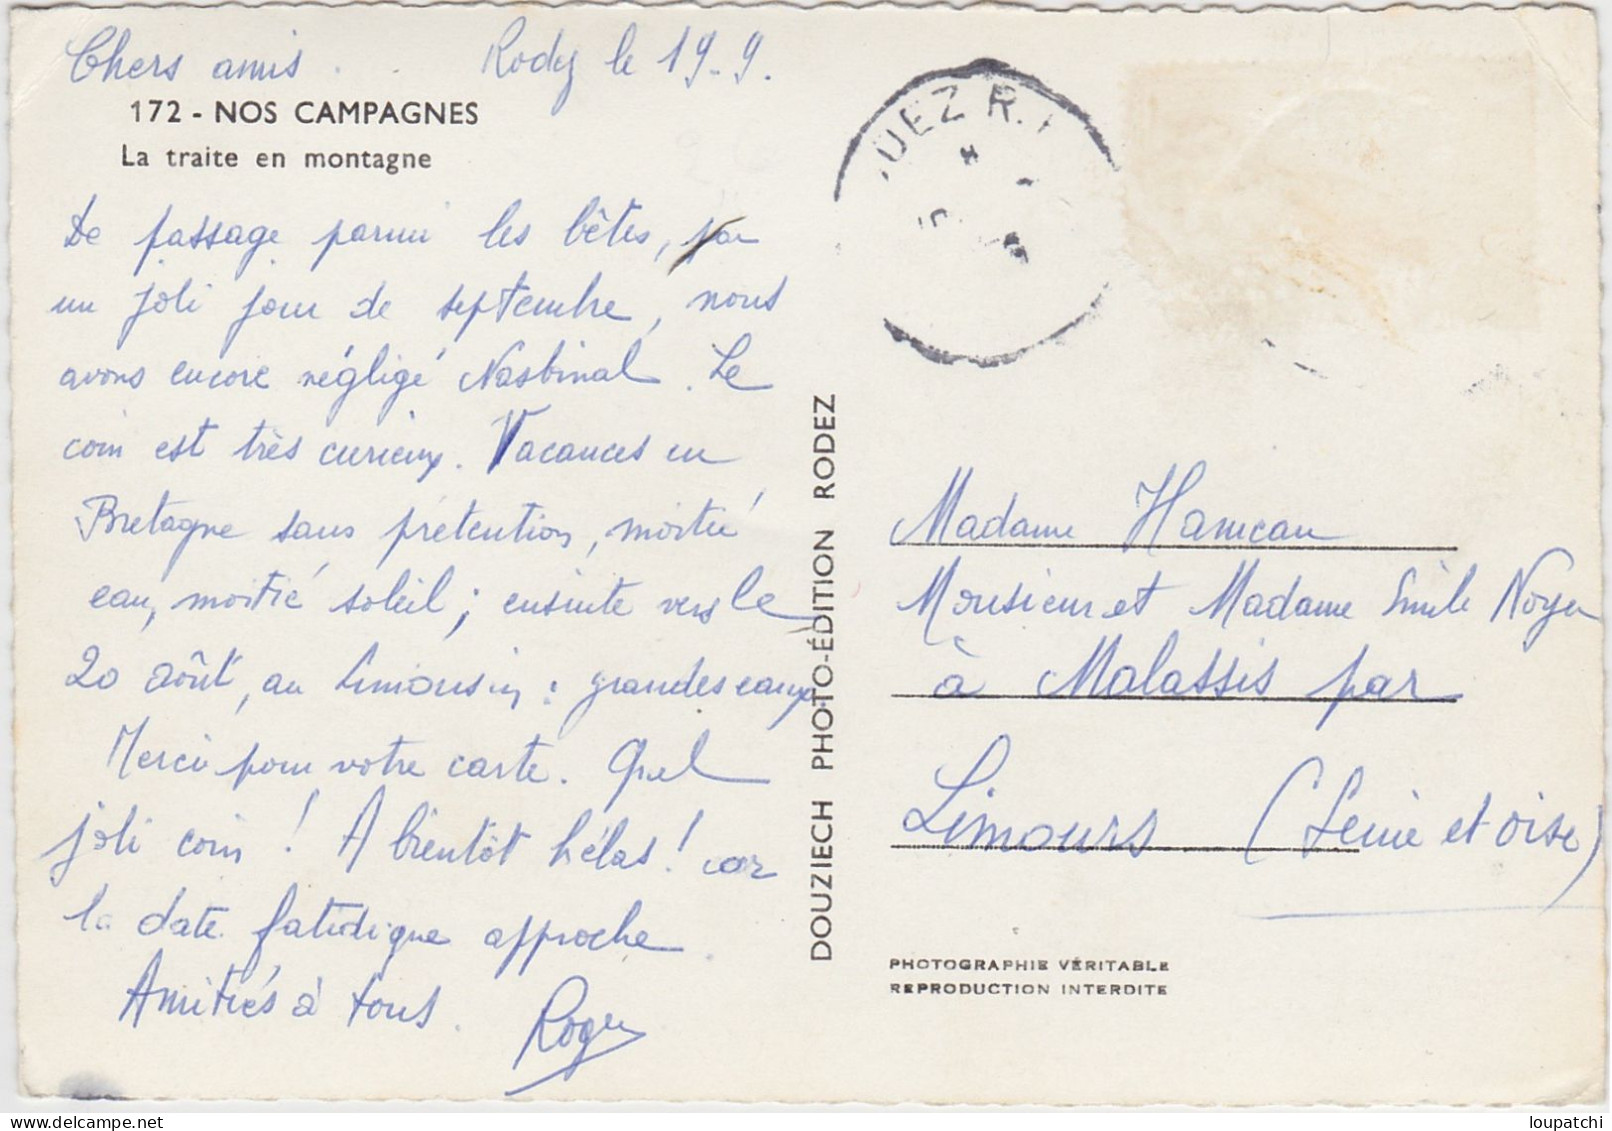 Chers amis . . Rodez le 19-9.
172 - NOS CAMPAGNES
La traite en montagne
De passage parmi les bêtes, par
un joli jour de septembre, nous
avons encore négligé Nasbinal. Le
coin est très curieux. Vacances en
Bretagne sans prétention, moitié
eau, moitié soleil ; ensuite vers le
20 août, au Limousin : grandes eaux
Merci pour votre carte. Quel
joli coin ! A bientôt hélas ! car
la date fatidique approche.
Amitiés à tous. Roger
DOUZIECH PHOTO-ÉDITION RODEZ
UEZ R.
Madame Hameau
Monsieur et Madame Emile Noyer
à Malassis par
Limours (Seine et Oise)
PHOTOGRAPHIE VÉRITABLE
REPRODUCTION INTERDITE
loupatchi